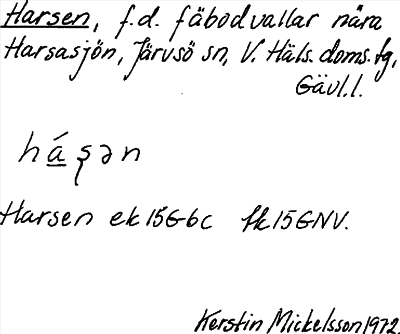 Harsen, f.d. fäbodvallar nära
Harsasjön, Järvsö sn, V. Häls. doms. tg,
Gävl.l.
há̱ṣən
Harsen ek15G6c fk15GNV.
Kerstin Mickelsson 1972.